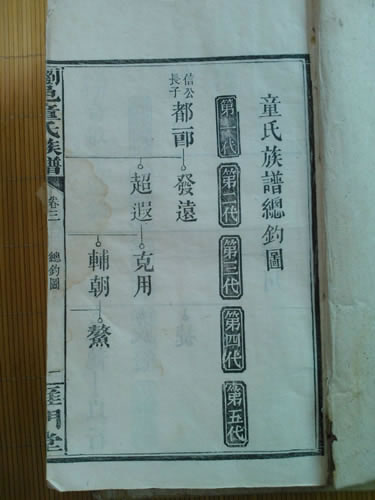 童氏族譜總釣圖
第一代
第二代
第三代
第四代
第五代
信公
長子
都
發遠
超遐
克用
輔朝
鰲
瀏邑童氏族譜
卷三
總釣圖
一
雁門堂